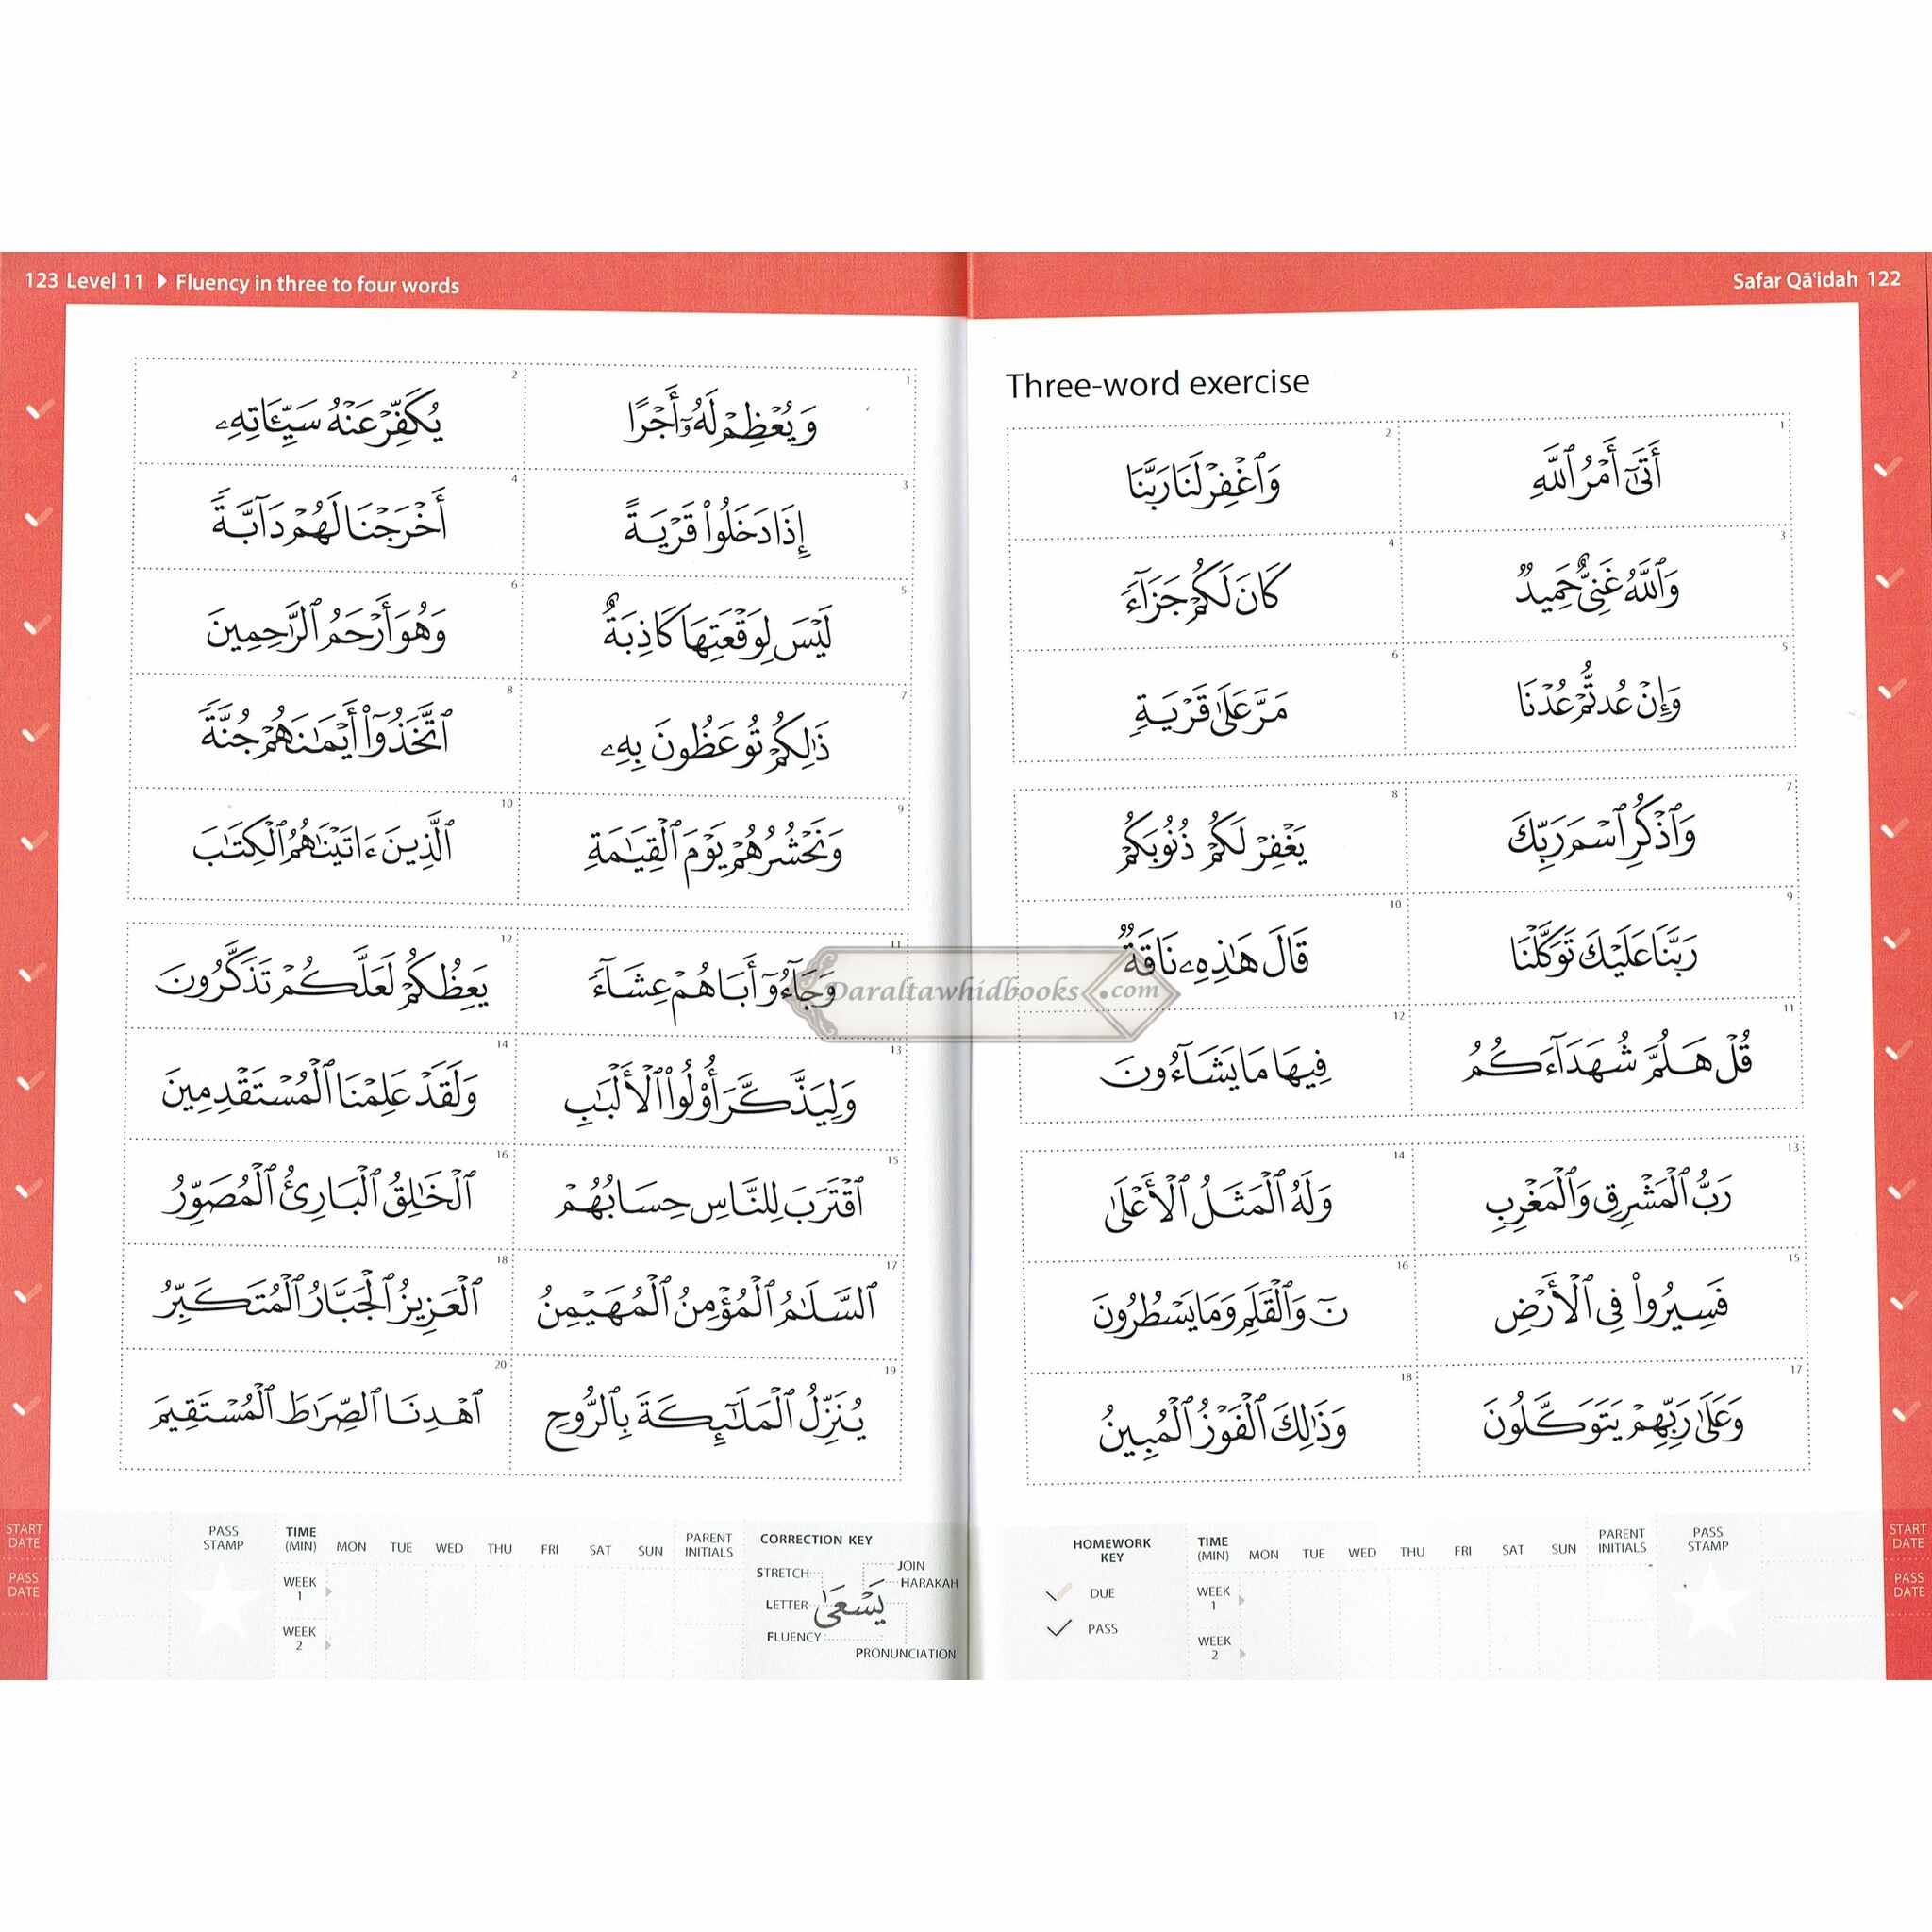 Safar Qā'idah 122
Three-word exercise
1 أَتَىٰٓ أَمْرُ ٱللَّهِ
2 وَٱغْفِرْ لَنَا رَبَّنَا
3 وَٱللَّهُ غَنِىٌّ حَمِيدٌ
4 كَانَ لَكُمْ جَزَآءً
5 وَإِنْ عُدتُّمْ عُدْنَا
6 مَرَّ عَلَىٰ قَرْيَةٍ
7 وَٱذْكُرِ ٱسْمَ رَبِّكَ
8 يَغْفِرْ لَكُمْ ذُنُوبَكُمْ
9 رَبَّنَا عَلَيْكَ تَوَكَّلْنَا
10 قَالَ هَٰذِهِۦ نَاقَةٌ
11 قُلْ هَلُمَّ شُهَدَآءَكُمُ
12 فِيهَا مَا يَشَآءُونَ
13 رَبُّ ٱلْمَشْرِقِ وَٱلْمَغْرِبِ
14 وَلَهُ ٱلْمَثَلُ ٱلْأَعْلَىٰ
15 فَسِيرُوا۟ فِى ٱلْأَرْضِ
16 نٓ وَٱلْقَلَمِ وَمَا يَسْطُرُونَ
17 وَعَلَىٰ رَبِّهِمْ يَتَوَكَّلُونَ
18 وَذَٰلِكَ ٱلْفَوْزُ ٱلْمُبِينُ
HOMEWORK KEY
DUE
PASS
TIME (MIN) MON TUE WED THU FRI SAT SUN PARENT INITIALS PASS STAMP
WEEK 1
WEEK 2
START DATE
PASS DATE
123 Level 11 Fluency in three to four words
1 وَيُعْظِمْ لَهُۥٓ أَجْرًا
2 يُكَفِّرْ عَنْهُ سَيِّـَٔاتِهِۦ
3 إِذَا دَخَلُوا۟ قَرْيَةً
4 أَخْرَجْنَا لَهُمْ دَآبَّةً
5 لَيْسَ لِوَقْعَتِهَا كَاذِبَةٌ
6 وَهُوَ أَرْحَمُ ٱلرَّٰحِمِينَ
7 ذَٰلِكُمْ تُوعَظُونَ بِهِۦ
8 ٱتَّخَذُوٓا۟ أَيْمَٰنَهُمْ جُنَّةً
9 وَنَحْشُرُهُمْ يَوْمَ ٱلْقِيَٰمَةِ
10 ٱلَّذِينَ ءَاتَيْنَٰهُمُ ٱلْكِتَٰبَ
11 وَجَآءُوٓ أَبَاهُمْ عِشَآءً
12 يَعِظُكُمْ لَعَلَّكُمْ تَذَكَّرُونَ
13 وَلِيَذَّكَّرَ أُو۟لُوا۟ ٱلْأَلْبَٰبِ
14 وَلَقَدْ عَلِمْنَا ٱلْمُسْتَقْدِمِينَ
15 ٱقْتَرَبَ لِلنَّاسِ حِسَابُهُمْ
16 ٱلْخَٰلِقُ ٱلْبَارِئُ ٱلْمُصَوِّرُ
17 ٱلسَّلَٰمُ ٱلْمُؤْمِنُ ٱلْمُهَيْمِنُ
18 ٱلْعَزِيزُ ٱلْجَبَّارُ ٱلْمُتَكَبِّرُ
19 يُنَزِّلُ ٱلْمَلَٰٓئِكَةَ بِٱلرُّوحِ
20 ٱهْدِنَا ٱلصِّرَٰطَ ٱلْمُسْتَقِيمَ
START DATE
PASS DATE
PASS STAMP TIME (MIN) MON TUE WED THU FRI SAT SUN PARENT INITIALS
WEEK 1
WEEK 2
CORRECTION KEY
STRETCH
JOIN
HARAKAH
LETTER
يَسْعَىٰ
FLUENCY
PRONUNCIATION
Daraltawhidbooks.com